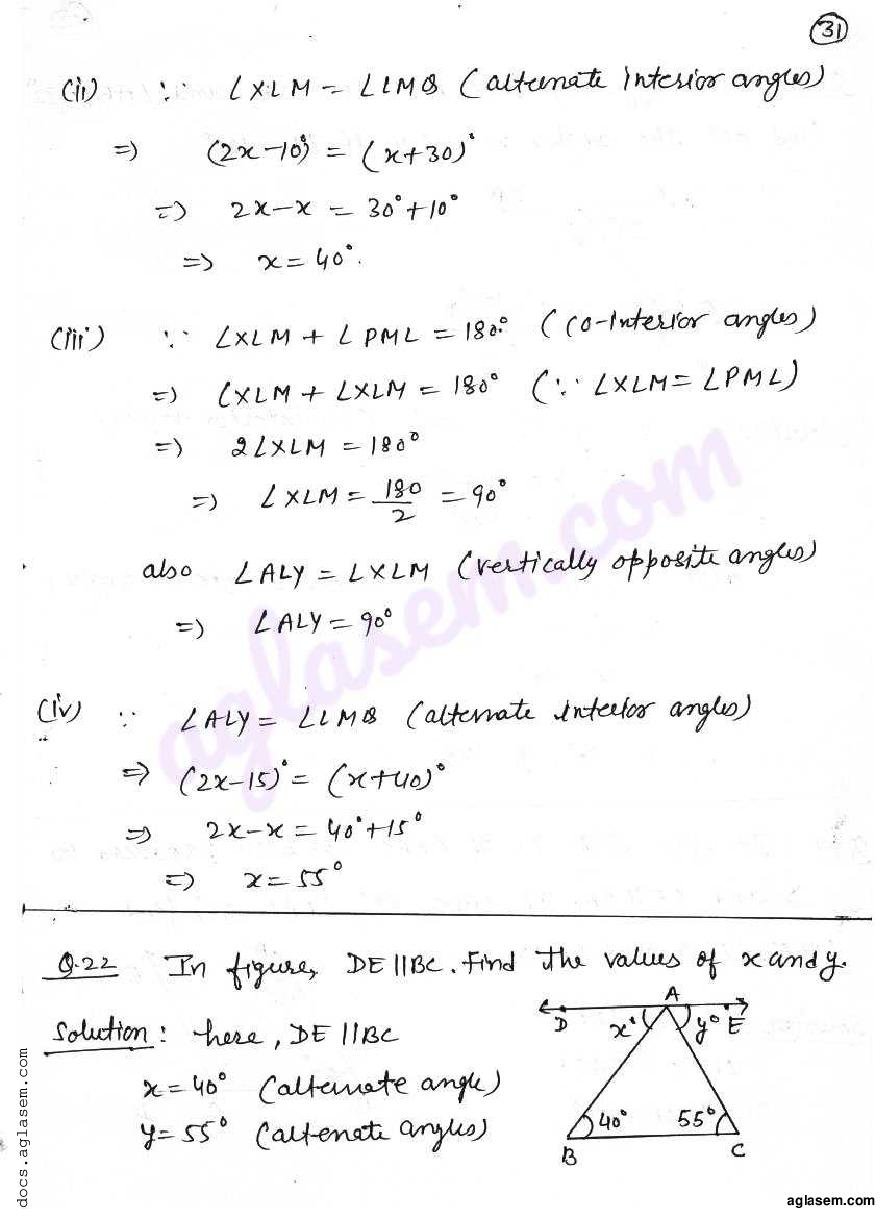 31
(ii) ∵ ∠XLM = ∠LMQ (alternate interior angles)
⇒ (2x-10°) = (x+30)°
⇒ 2x-x = 30°+10°
⇒ x = 40°.
(iii) ∵ ∠XLM + ∠PML = 180° (co-interior angles)
⇒ ∠XLM + ∠XLM = 180° (∵ ∠XLM = ∠PML)
⇒ 2∠XLM = 180°
⇒ ∠XLM = 180/2 = 90°
also ∠ALY = ∠XLM (vertically opposite angles)
⇒ ∠ALY = 90°
(iv) ∵ ∠ALY = ∠LMQ (alternate interior angles)
⇒ (2x-15)° = (x+40)°
⇒ 2x-x = 40°+15°
⇒ x = 55°
Q.22 In figure, DE||BC. Find the values of x and y.
Solution: here, DE||BC
x = 40° (alternate angle)
y = 55° (altenate angles)
A
D x° y° E
40° 55°
B C
aglasem.com
docs.aglasem.com
aglasem.com